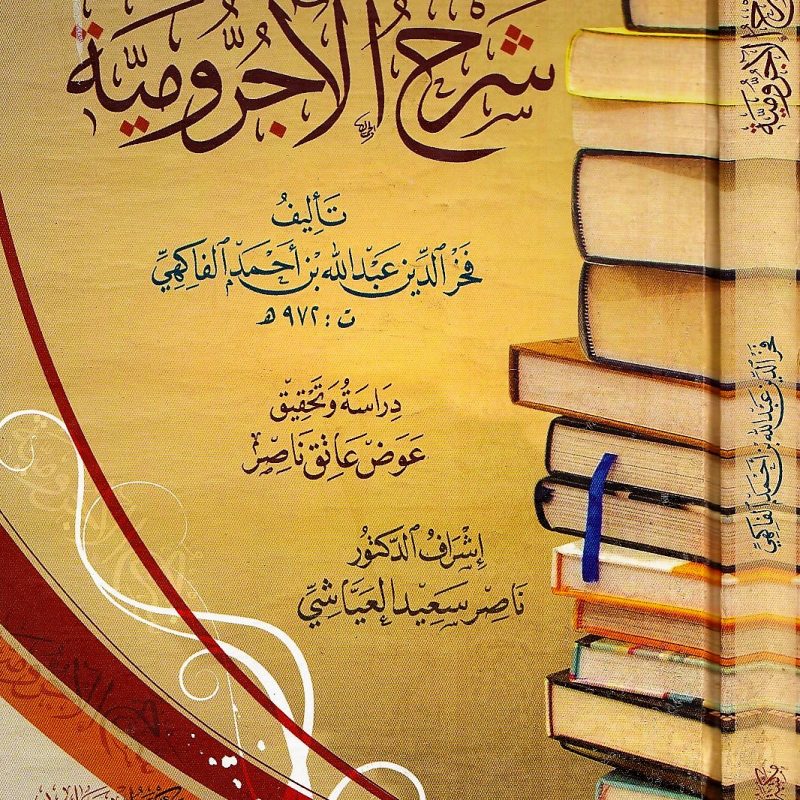 شَرْحُ الْآجُرُّومِيَّة
تَأْلِيفُ
فَخْرُ الدِّين عَبْدُ اللَّه بْن أَحْمَد الفَاكِهِيّ
ت : ٩٧٢ هـ
دِرَاسَةُ وَتَحْقِيق
عَوَض عَاتِق نَاصِر
إِشْرَافُ الدَّكتُور
نَاصِر سَعِيد العَيَّاشِيّ
فخر الدين عبد الله بن أحمد الفاكهي